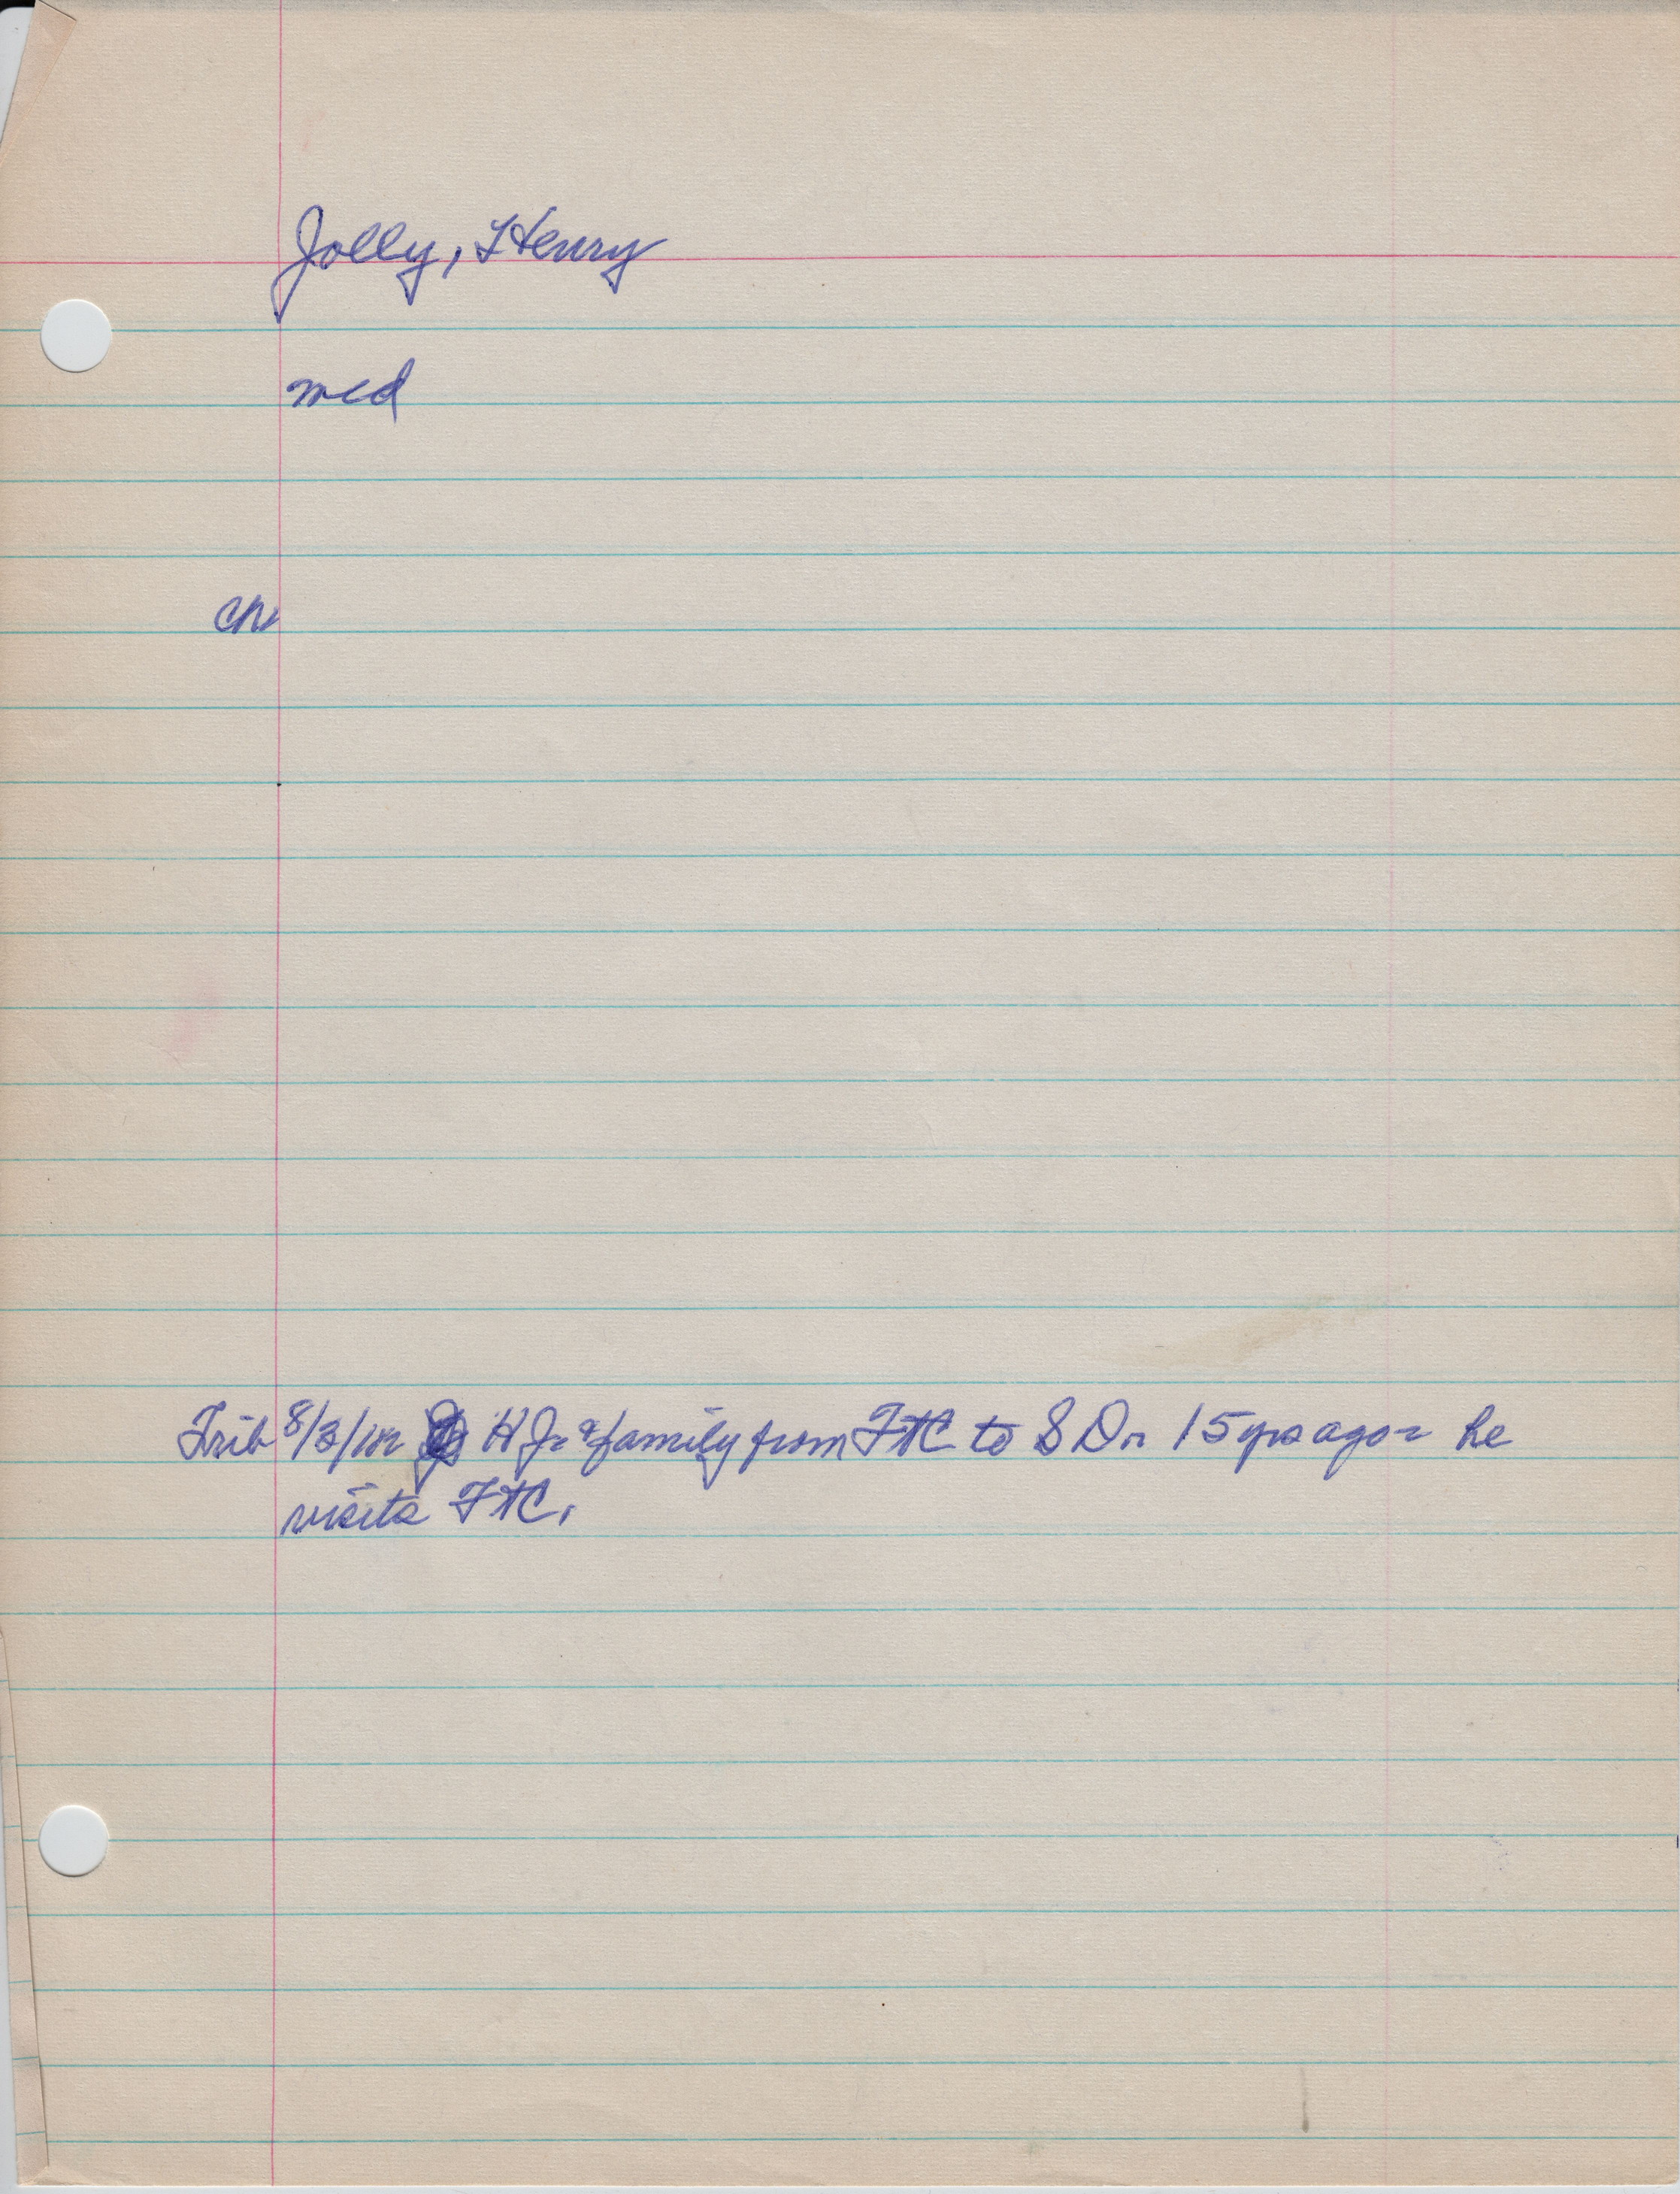 Jolly, Henry
mcd
ch
Trib 8/3/ H J & family from FTC to S D 15 yrs ago - he
visits FTC.